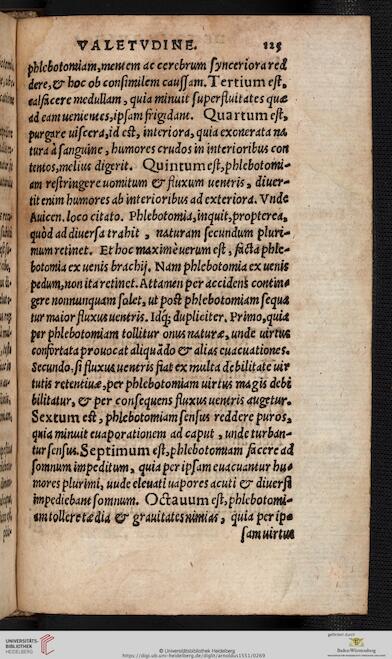 VALETVDINE. 125
phlebotomiam, mentem ac cerebrum synceriora red
dere, & hoc ob consimilem caussam. Tertium est,
calfacere medullam, quia minuit superfluitates quæ
ad eam uenientes, ipsam frigidant. Quartum est,
purgare uiscera, id est, interiora, quia exonerata na
tura à sanguine, humores crudos in interioribus con
tentos, melius digerit. Quintum est, phlebotomi-
am restringere uomitum & fluxum uentris, diuer-
tit enim humores ab interioribus ad exteriora. Vnde
Auicen. loco citato. Phlebotomia, inquit, propterea,
quòd ad diuersa trahit, naturam secundum pluri-
mum retinet. Et hoc maximè uerum est, facta phle-
botomia ex uenis brachij. Nam phlebotomia ex uenis
pedum, non ita retinet. Attamen per accidens contin-
gere nonnunquam solet, ut post phlebotomiam sequa
tur maior fluxus uentris. Idq; dupliciter. Primo, quia
per phlebotomiam tollitur onus naturæ, unde uirtus
confortata prouocat aliquãdo & alias euacuationes.
Secundo, si fluxus uentris fiat ex multa debilitate uir
tutis retentiuæ, per phlebotomiam uirtus magis debi
bilitatur, & per consequens fluxus uentris augetur.
Sextum est, phlebotomiam sensus reddere puros,
quia minuit euaporationem ad caput, unde turban-
tur sensus. Septimum est, phlebotomiam facere ad
somnum impeditum, quia per ipsam euacuantur hu-
mores plurimi, unde eleuati uapores acuti & diuersi
impediebant somnum. Octauum est, phlebotomi-
am tollere tædia & grauitates nimias, quia per ip-
sam uirtus
UNIVERSITÄTS-
BIBLIOTHEK
HEIDELBERG
© Universitätsbibliothek Heidelberg
https://digi.ub.uni-heidelberg.de/diglit/arnoldus1551/0269
gefördert durch
Baden-Württemberg